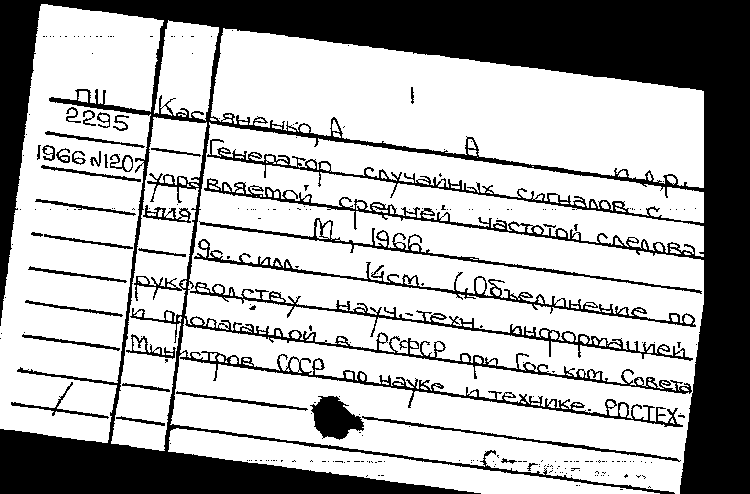 1
ПII
2295
1966 №1207
Касьяненко, А А и др.
Генератор случайных сигналов с
управляемой средней частотой следова-
ния.
М., 1966.
9с. с илл. 14см. (Объединение по
руководству науч.-техн. информацией
и пропагандой в РСФСР при Гос. ком. Совета
Министров СССР по науке и технике. РОСТЕХ-